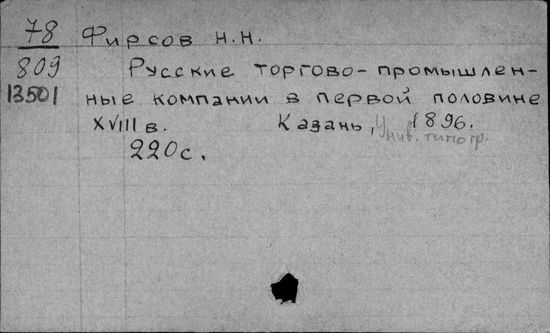 78 Фирсов Н.Н.
809 Русские торгово-промышлен-
13501 ные компании в первой половине
XVIII в. Казань, 1896.
Унив. типогр.
220 с.